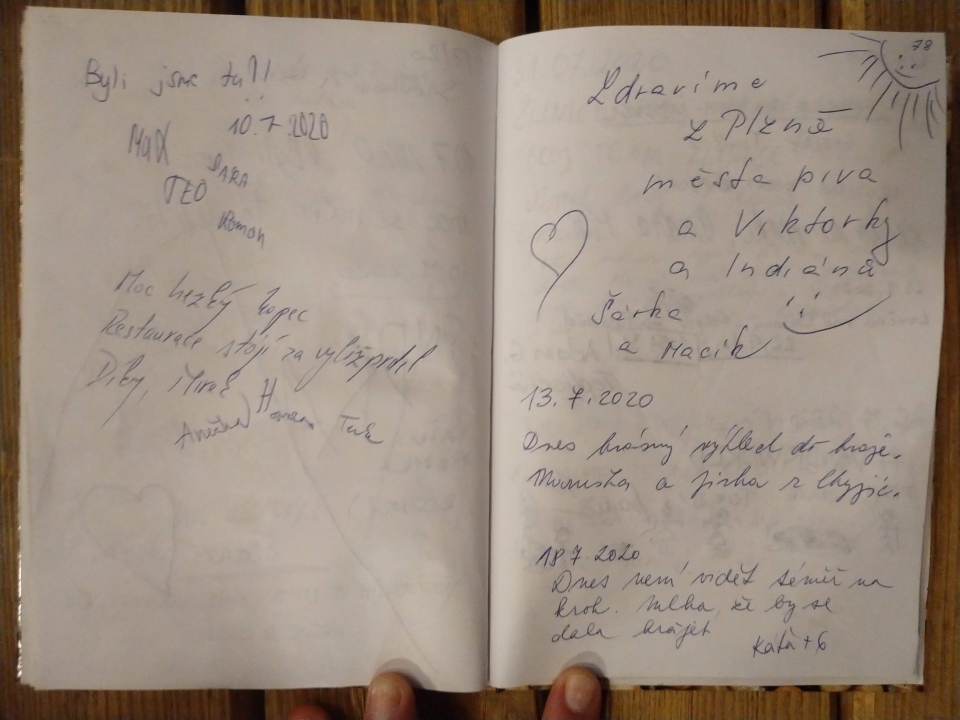 Byli jsme tu!!
10.7.2020
Max
SARA
TEO
Roman
Moc hezký kopec
Restaurace stojí za vylížprdel
Díky, Mirek
Anička Honza
78
Zdravíme
z Plzně
města piva
a Viktorky
a Indiánů
Šárka
a Macík
13.7.2020
Dnes krásný výhled do kraje.
Maruška a Jirka z Chyjic.
18.7 2020
Dnes není vidět téměř na
krok. Mlha, že by se
dala krájet
Káťa + 6